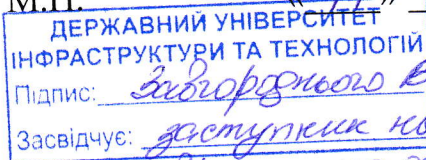 М.П.
ДЕРЖАВНИЙ УНІВЕРСИТЕТ
ІНФРАСТРУКТУРИ ТА ТЕХНОЛОГІЙ
Підпис: Завгороднього В
Засвідчує: заступник на